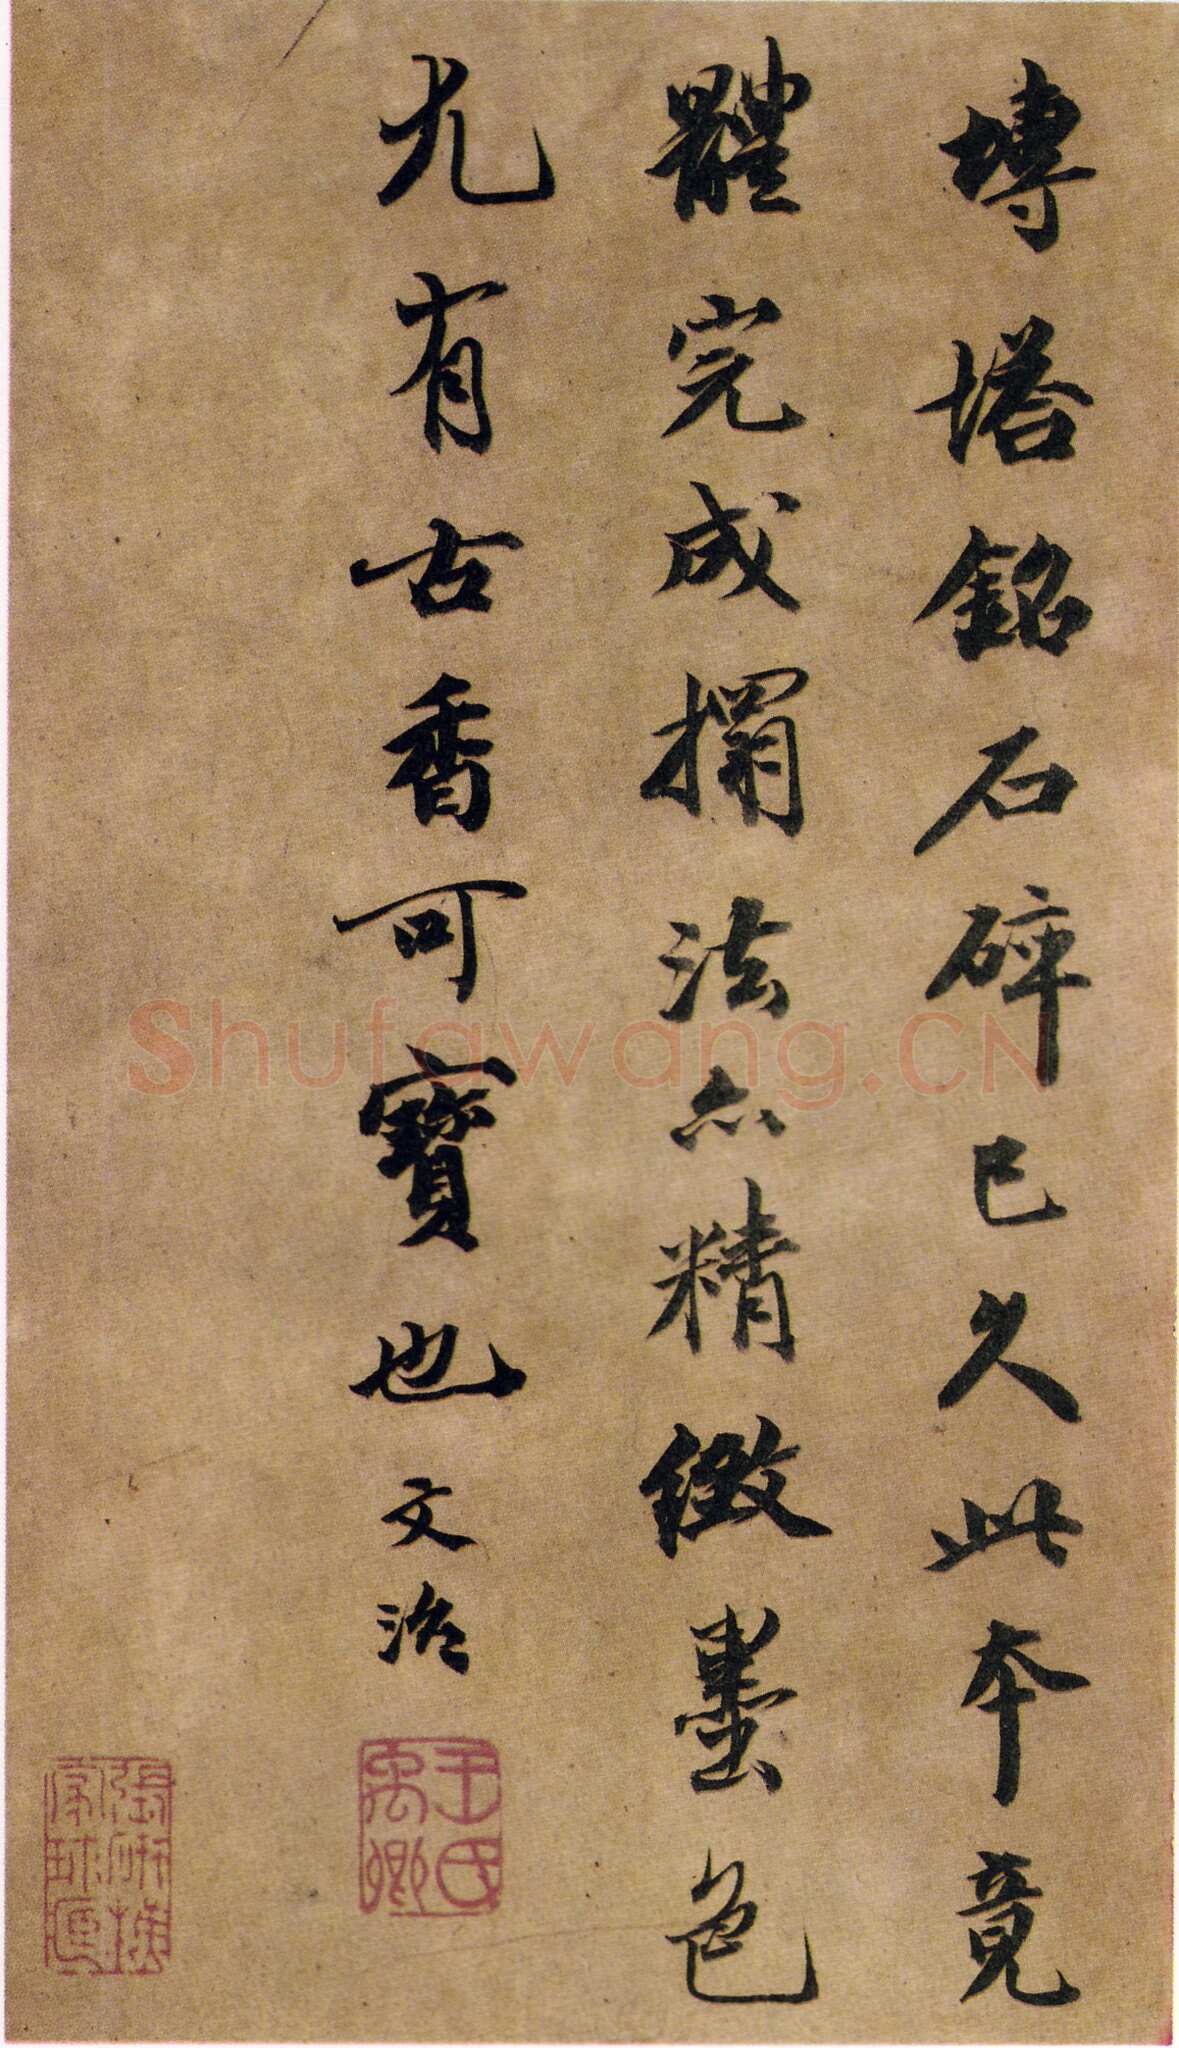 塼塔銘石碎已久此本竟
體完成搨法亦精緻墨色
尤有古香可寶也文治
王氏禹卿
Shufawang.CN